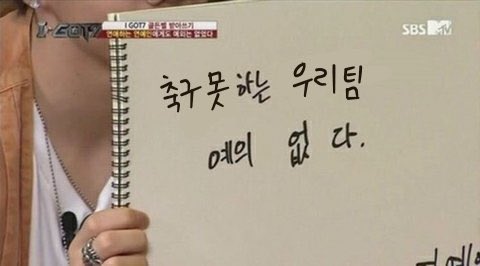 I-GOT7
I GOT7 골든벨 받아쓰기
연애하는 연예인에게도 예외는 없었다
SBS MTV
축구 못하는 우리팀
예의 없다.